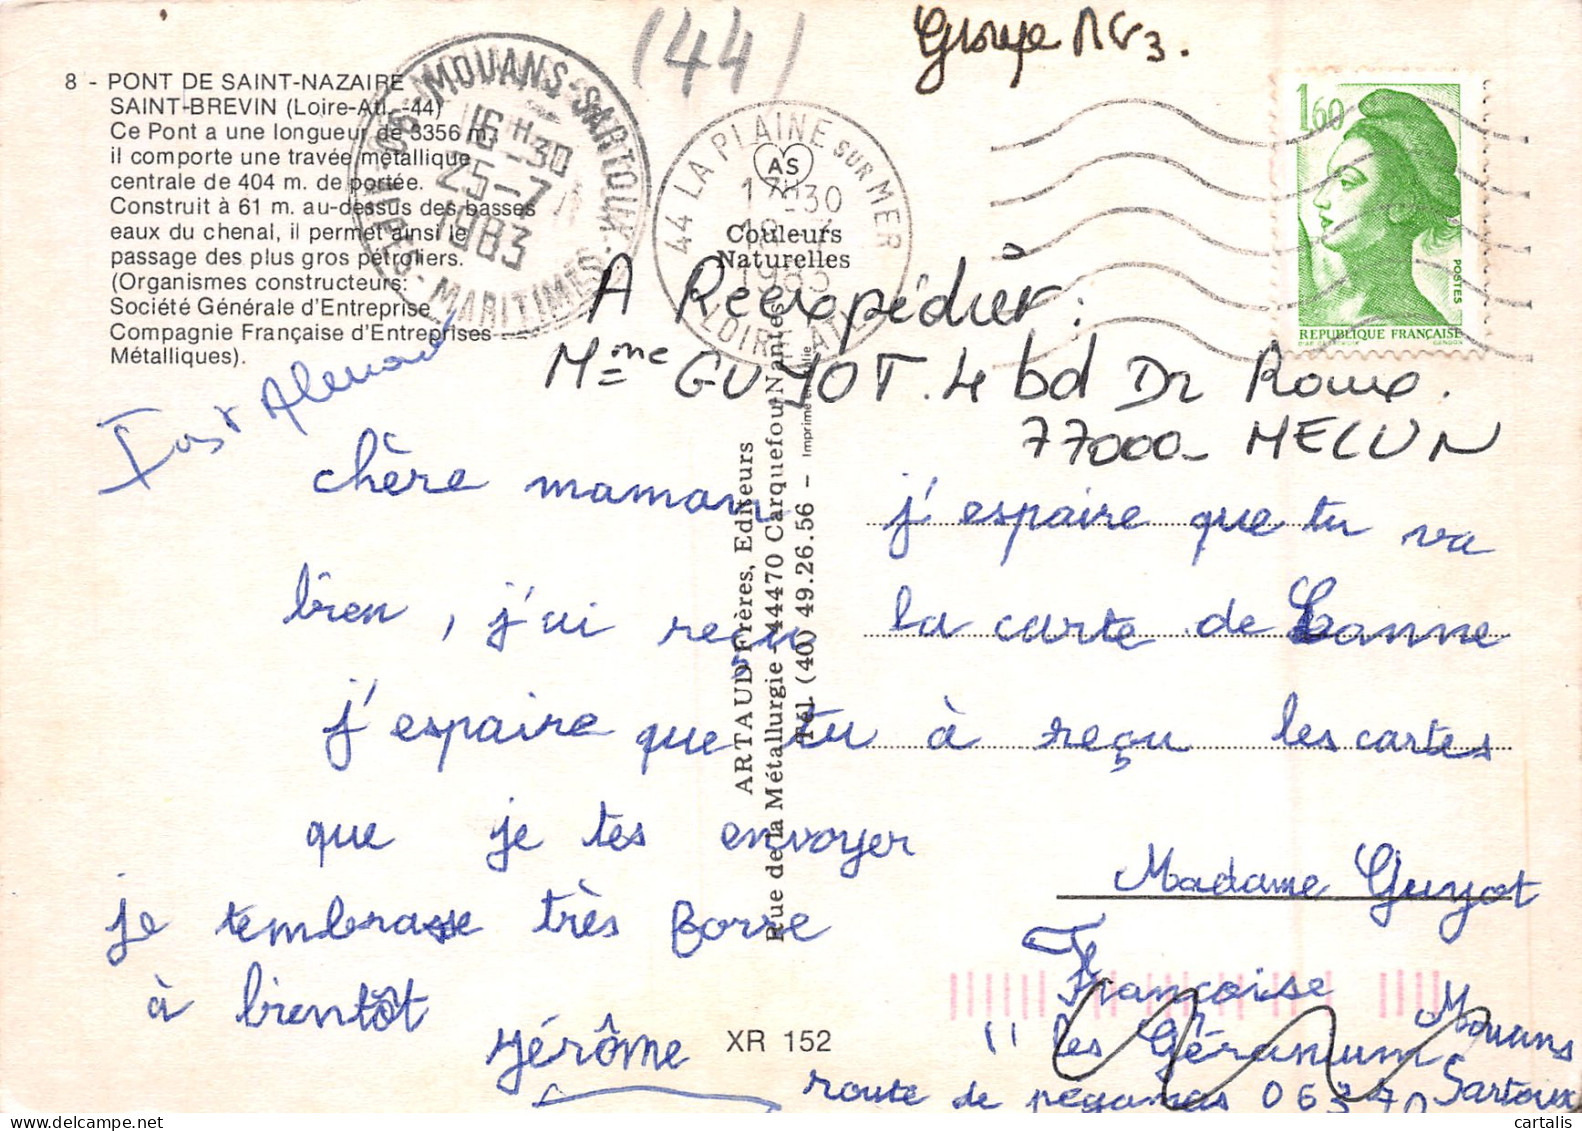 (44)
Groupe
8 - PONT DE SAINT-NAZAIRE
SAINT-BREVIN (Loire-Atl. -44)
Ce Pont a une longueur de 3356 m.
il comporte une travée métallique
centrale de 404 m. de portée.
Construit à 61 m. au-dessus des basses
eaux du chenal, il permet ainsi le
passage des plus gros pétroliers.
(Organismes constructeurs:
Société Générale d'Entreprise
Compagnie Française d'Entreprises
Métalliques).
06 MOUANS-SARTOUX
16 H 30
25-7
1983
ALPES-MARITIMES
44 LA PLAINE SUR MER
17H30
1983
LOIRE ATL
AS
Couleurs
Naturelles
1,60
POSTES
REPUBLIQUE FRANÇAISE
GANDON
A Reexpédier :
Mme GUYOT. 4 bd Dr Roux.
77000 - MELUN
chère maman j'espaire que tu va
bien, j'ai reçu la carte de Canne
j'espaire que tu à reçu les cartes
que je tes envoyer
je tembrasse très Forre
à bientôt
Jérôme
ARTAUD Frères, Editeurs
Rue de la Métallurgie - 44470 Carquefou Nantes
Tél. (40) 49.26.56 -
XR 152
Madame Guyot
Françoise
" les Géranium Mouans
route de pegomas 06370 Sartoux
cartalis